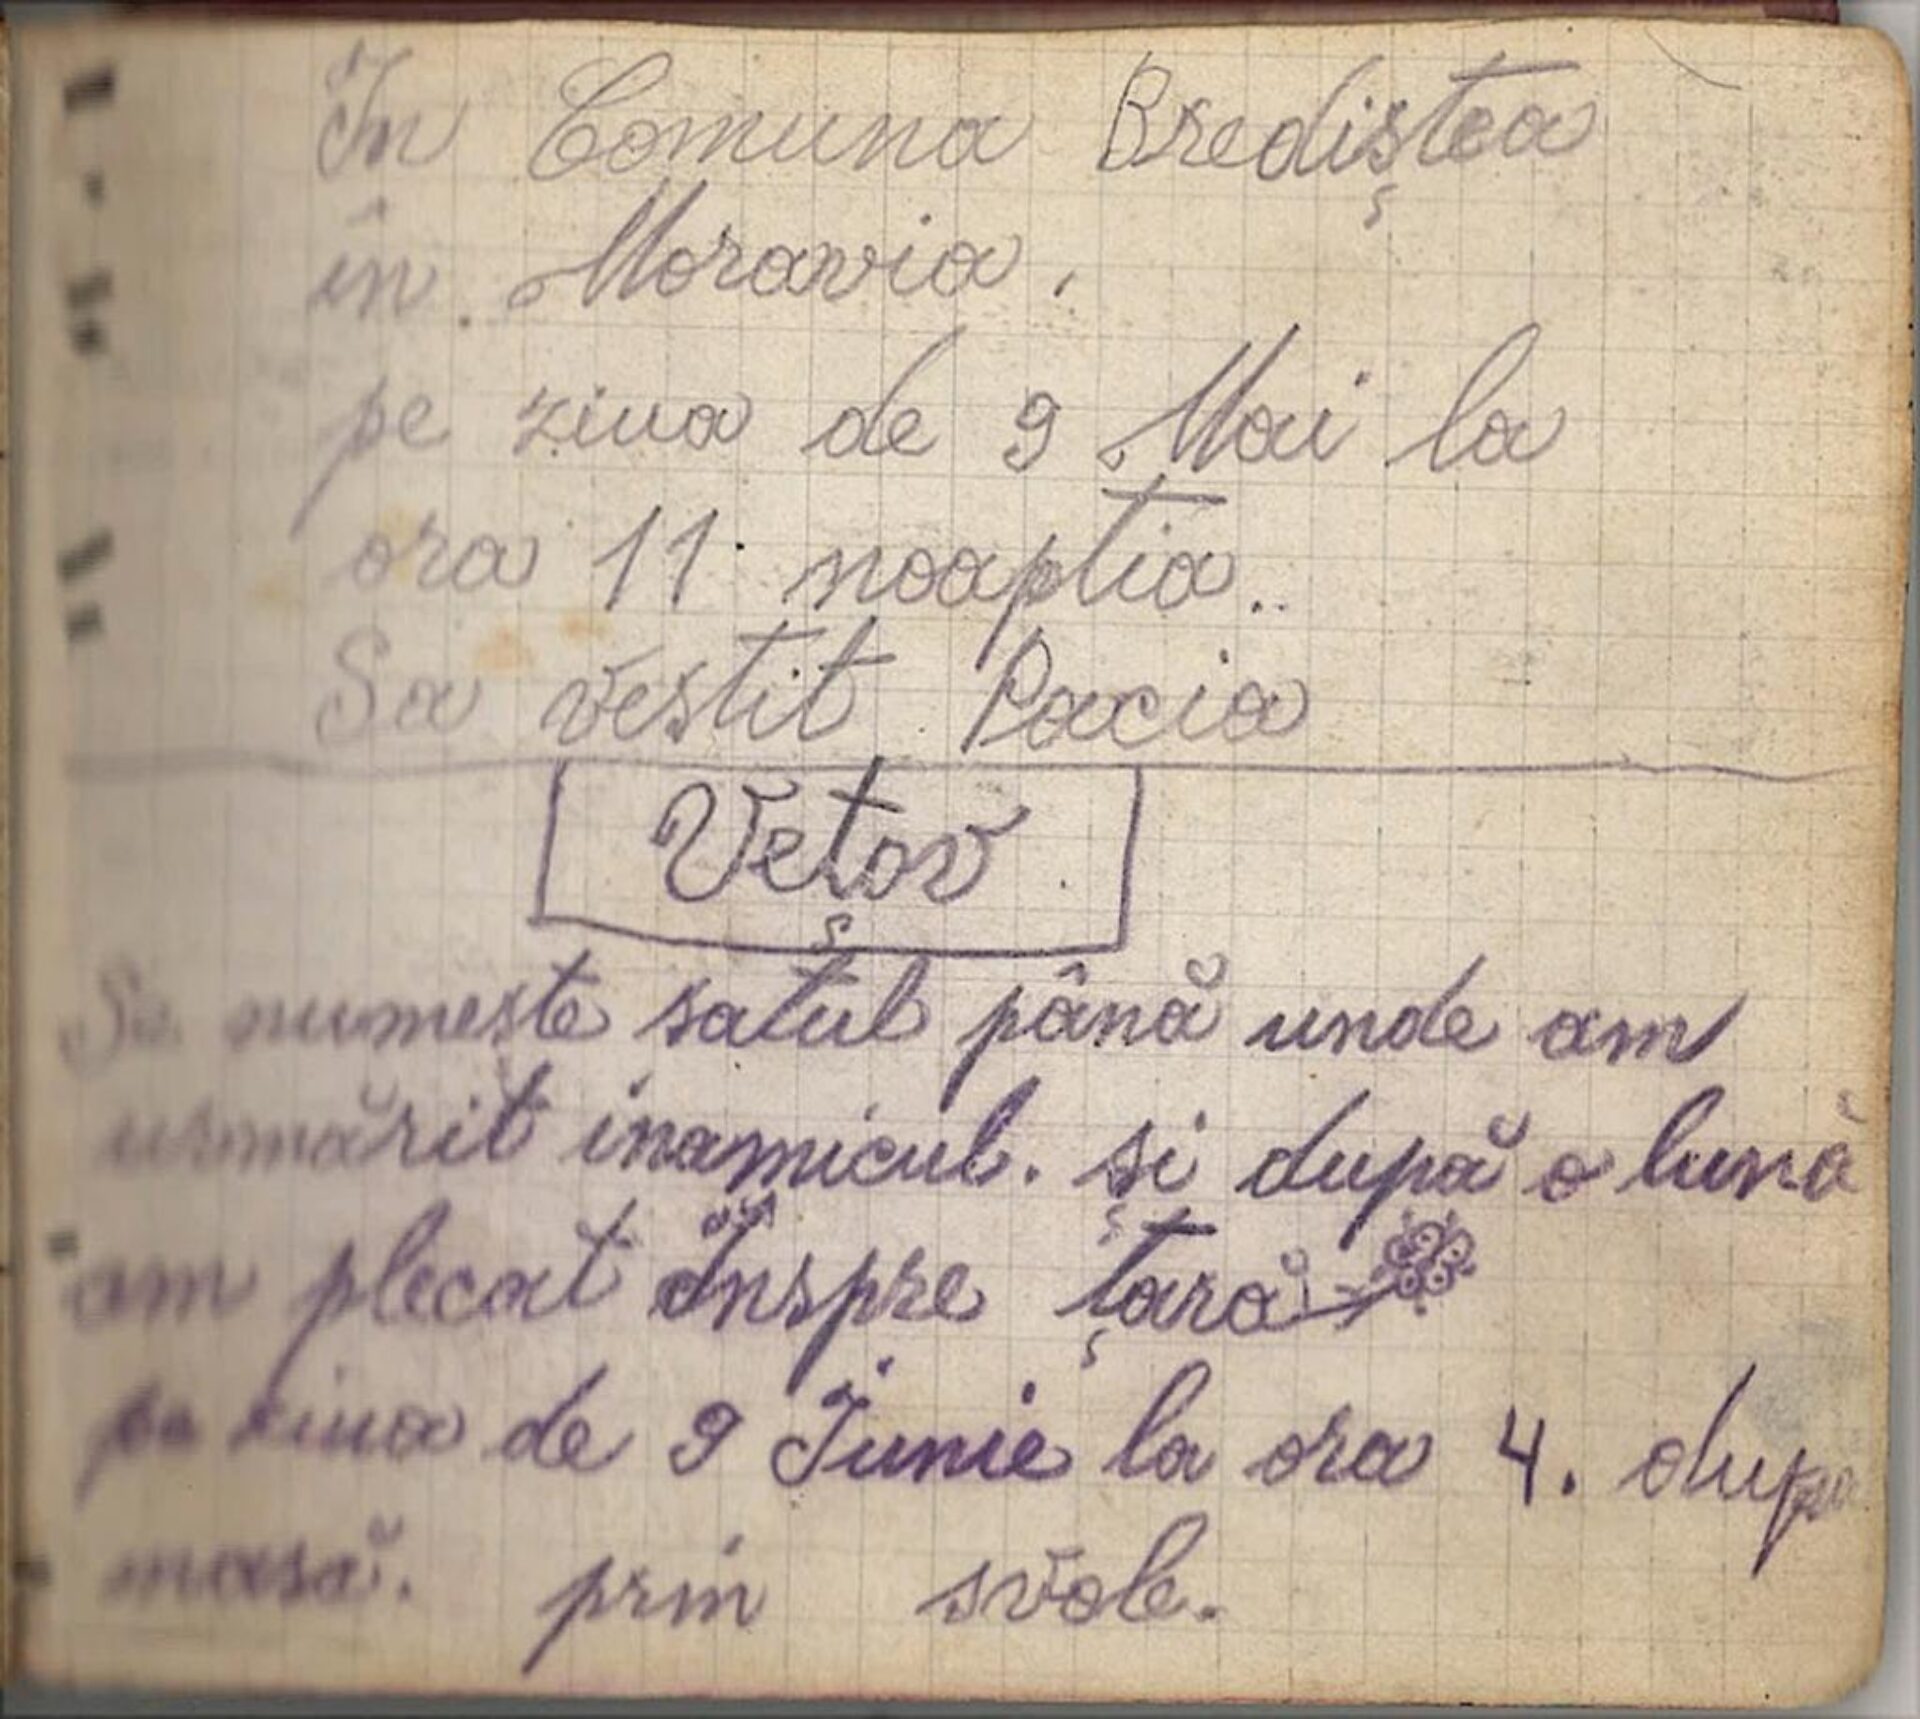 În Comuna Brediștea
în Moravia.
pe ziua de 9 Mai la
ora 11 noaptia..
Sa vestit Pacia
Vețov
Se numește satul până unde am
urmărit inamicul. și după o lună
am plecat înspre țară
pe ziua de 9 Iunie la ora 4. după
masă. prin svole.